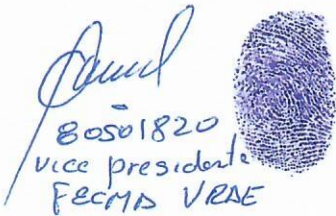 80501820
vice presidente
FECMA VRAE